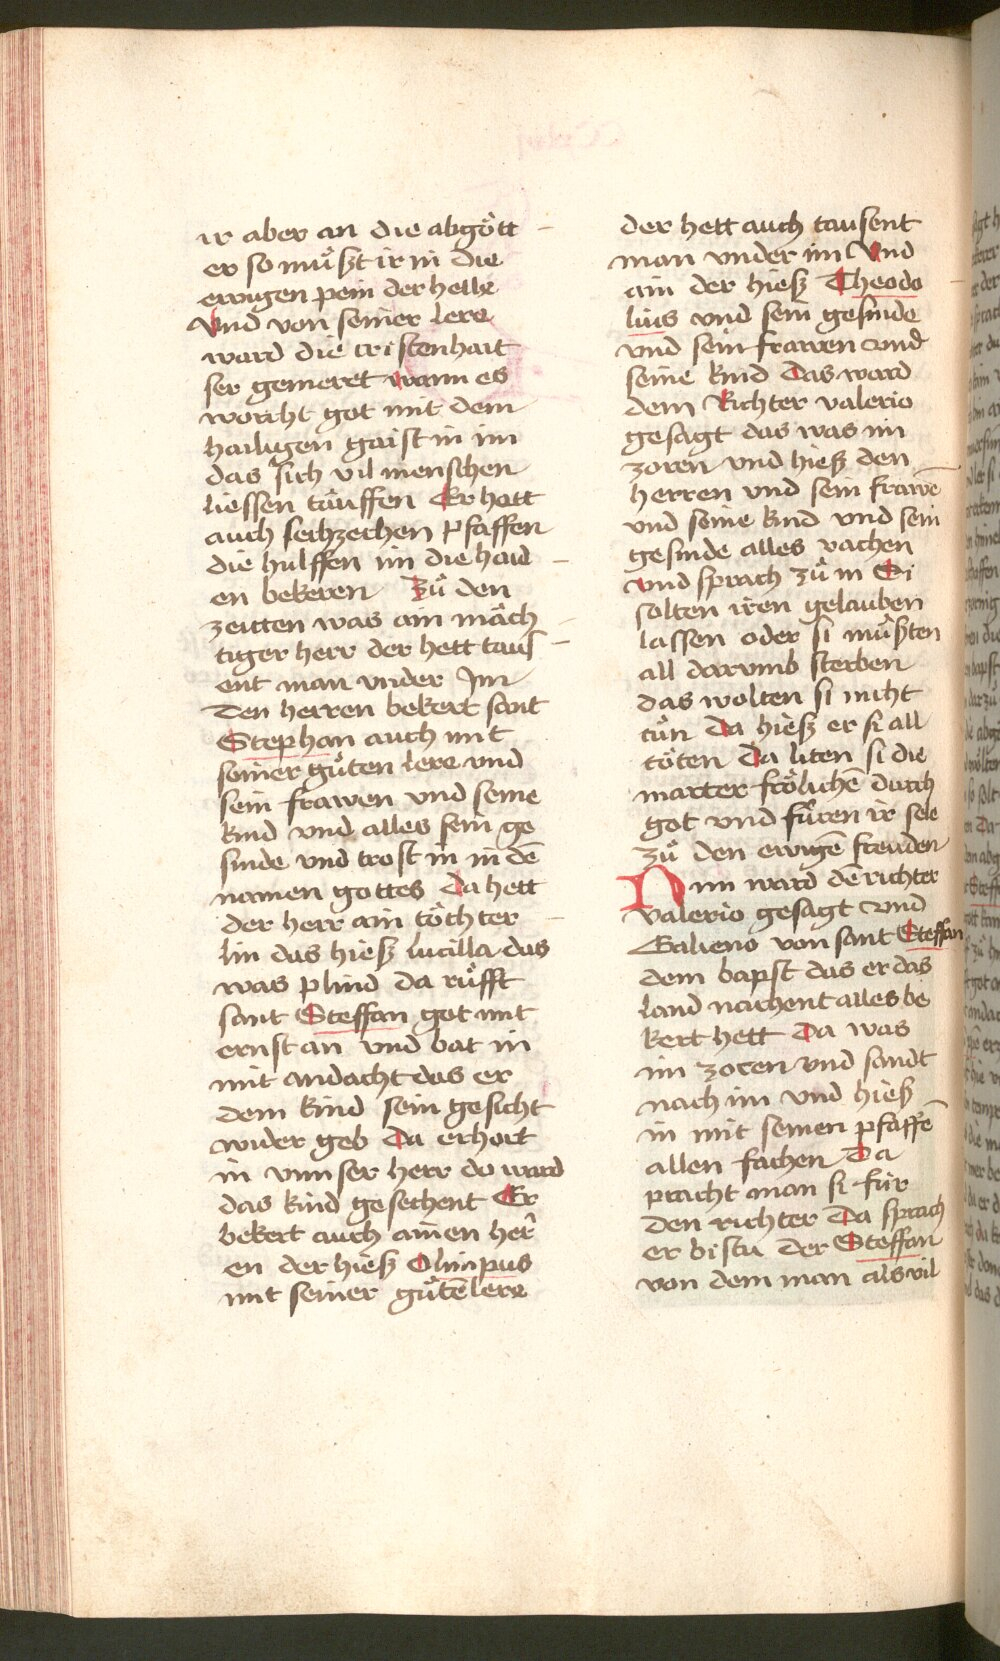 ir aber an die abgött-
er so mu̇ßt ir in die
ewigen pein der helle
Vnd von seiner lere
ward die cristenhait
ser gemeret wann es
worcht got mit dem
hailigen gaist in im
das sich vil menschen
liessen täuffen Er hett
auch sechzechen pfaffen
die hulffen im die haid-
en bekeren Zů den
zeitten was ain mäch-
tiger herr der hett taus-
ent man vnder Im
Den herren bekert sant
Stephan auch mit
seiner gůten lere vnd
sein frawen vnd seine
kind vnd alles sein ge
sinde vnd trost in in dē
namen gottes Da hett
der herr ain töchter-
lin das hieß lucilla das
was plind da růfft
sant Steffan got mit
ernst an vnd bat in
mit andacht das er
dem kind sein gesicht
wider geb Da erhort
in vnnser herr do ward
das kind gesechent Er
bekert auch ainen her̄
en der hieß Olimpus
mit seiner gůtē lere
der hett auch tausent
man vnder im Vnd
ain der hieß Theodo-
lius vnd sein gesinde
vnd sein frawen vnd
seine kind Das ward
dem Richter valerio
gesagt das was im
zoren vnd hieß den
herren vnd sein frawē
vnd seine kind vnd sein
gesinde alles vachen
vnd sprach zů in Si
solten iren gelauben
lassen oder si můßten
all darumb sterben
das wolten si nicht
tůn Da hieß er si all
töten Da liten si die
marter frölichē durch
got vnd fůren ir sele
zů den ewigē freuden
Nun ward dē richter
valerio gesagt vnd
Galieno von sant Steffan
dem bapst das er das
land nachent alles be
kert hett Da was
im zoren vnd sandt
nach im vnd hieß
in mit seinen pfaffē
allen fachen Da
pracht man si für
den richter Da sprach
er bistu der Steffan
von dem man als vil